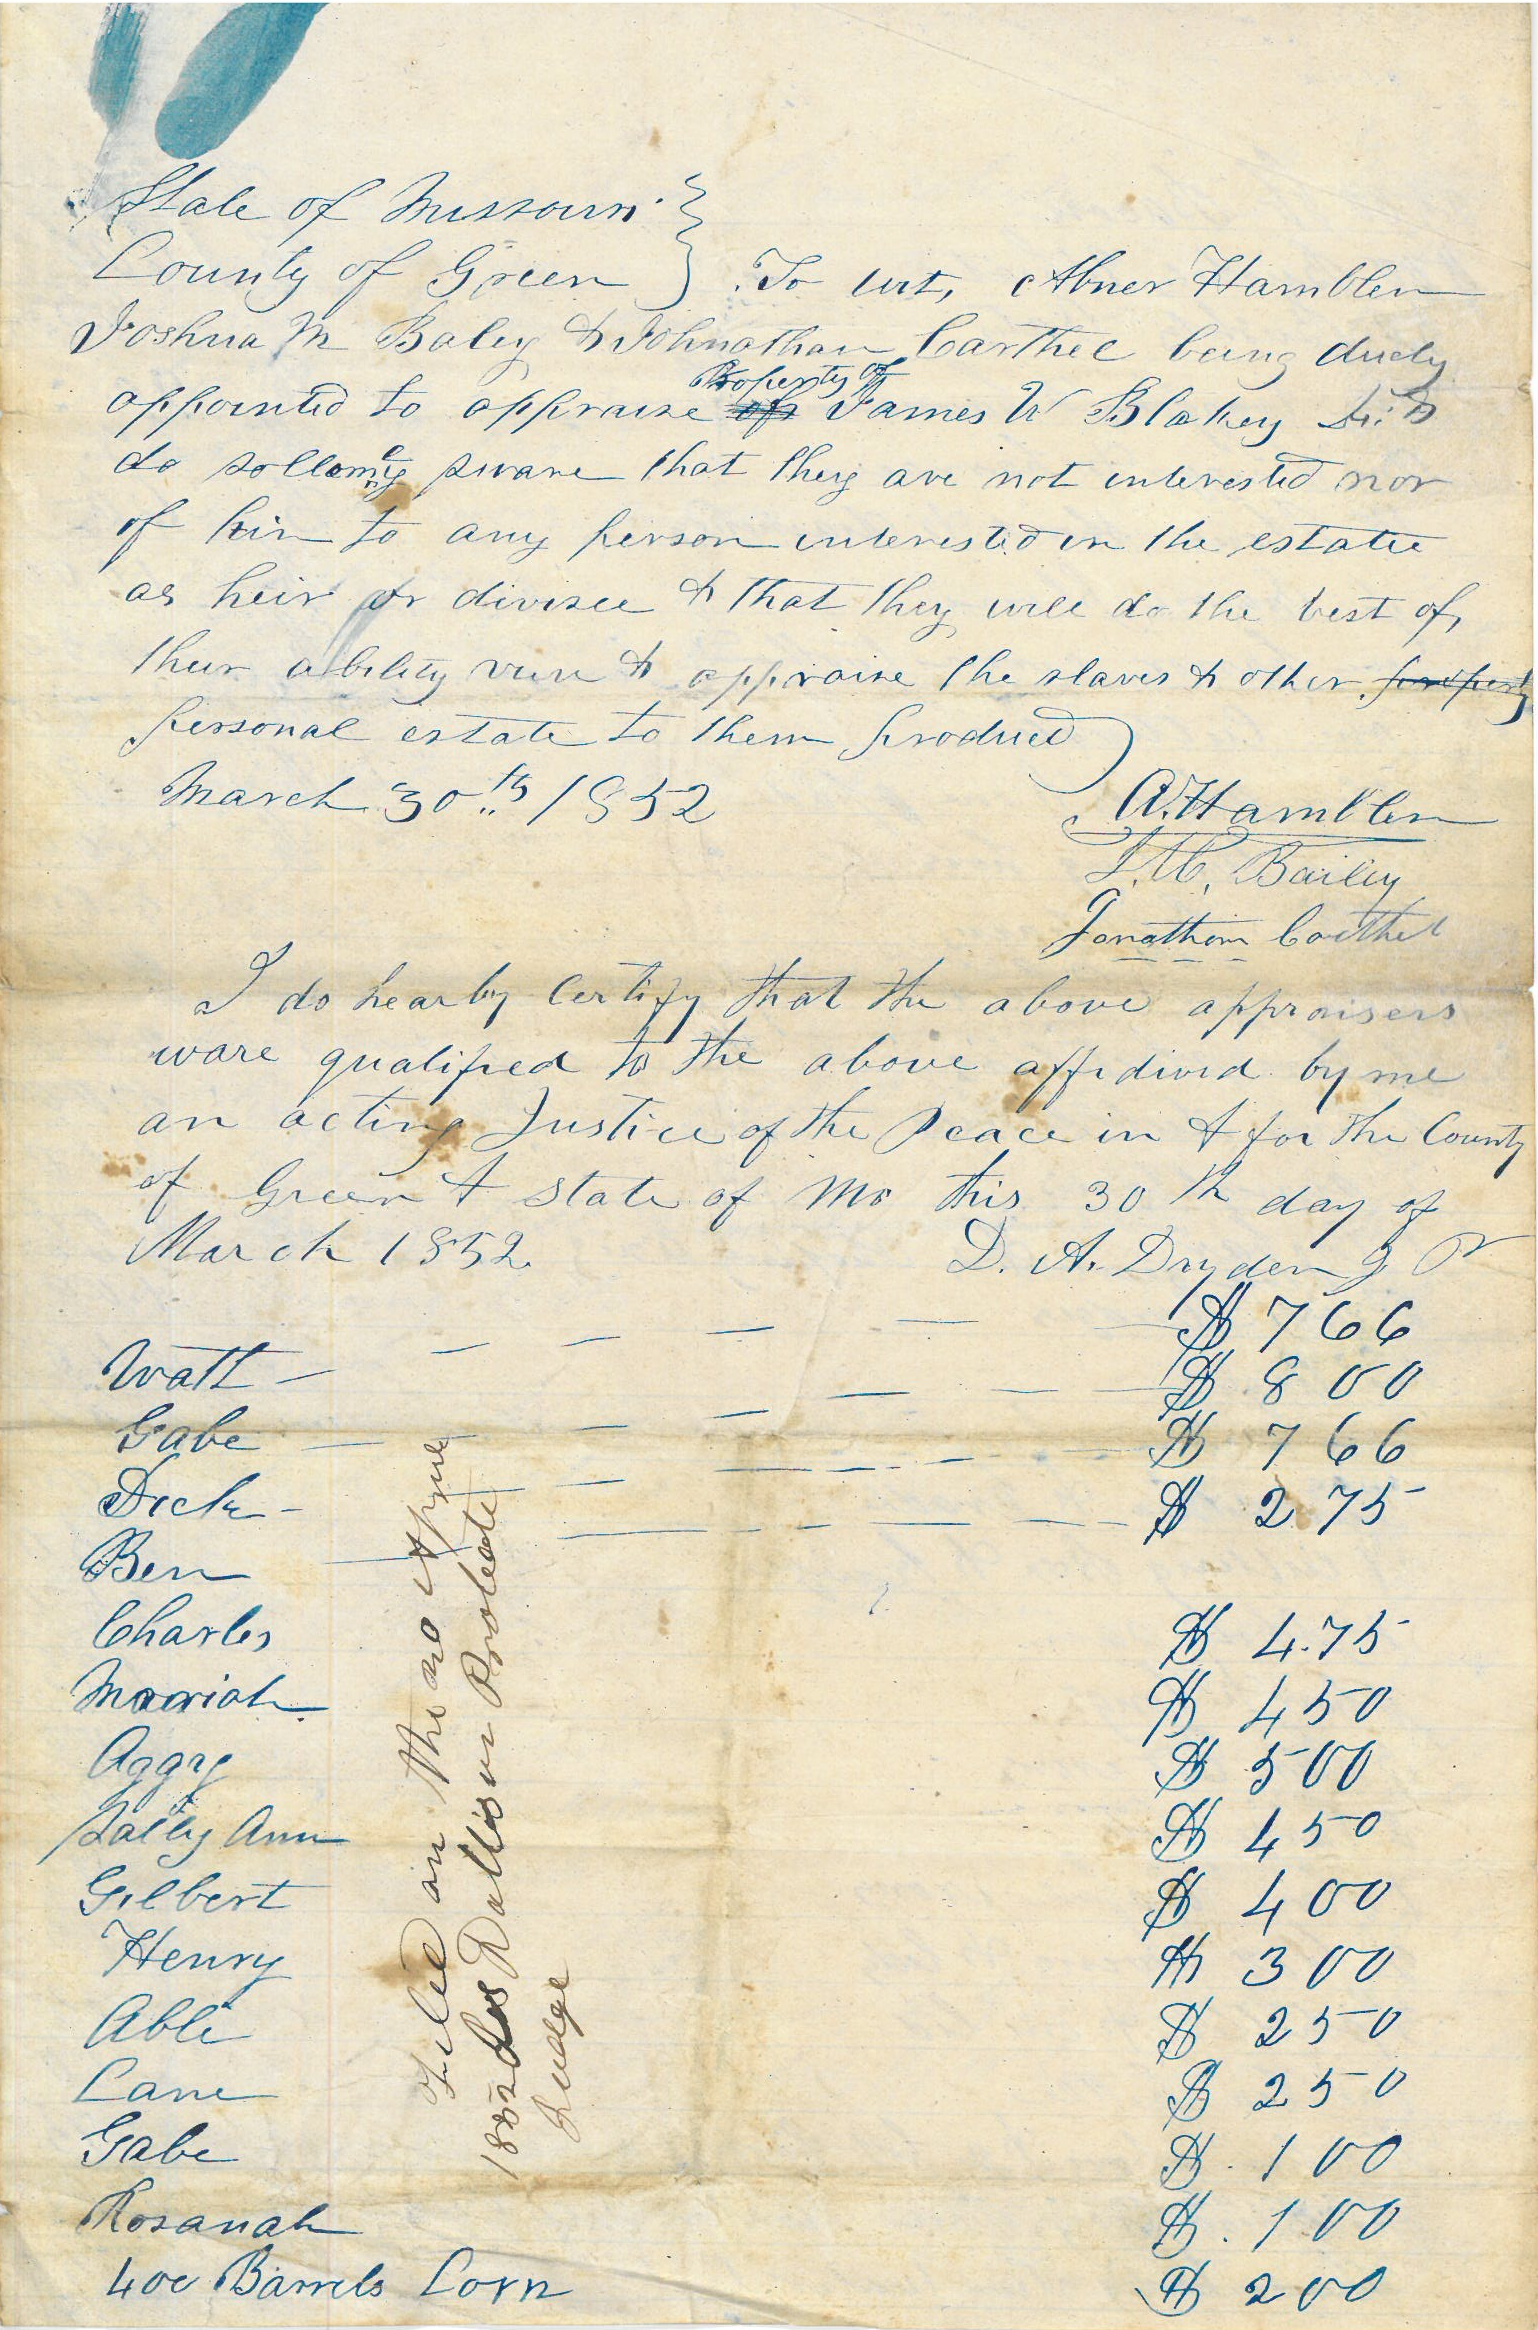 State of Missouri
County of Green } To wit, Abner Hamblen
Joshua M Baley & Johnathan Carthel being duely
appointed to appraise Property of James W Blakey
do sollemney sware that they are not interested nor
of kin to any person interested in the estate
as heir or divisee & that they will do the best of,
their ability view & appraise the slaves & other property
personal estate to them produced
March 30th 1852
A. Hamblen
J. M. Bailey
Jonathan Carthel
I do hearby Certify that the above appraisers
ware qualified to the above affidivid by me
an acting Justice of the Peace in & for the County
of Green & State of Mo this 30th day of
March 1852. D. A. Dryden J P
Watt $ 766
Gabe $ 800
Dick $ 766
Ben $ 275
Charles $ 475
Mariah $ 450
Aggy $ 500
Sally Ann $ 450
Gilbert $ 400
Henry $ 300
Able $ 250
Lane $ 250
Gabe $ 100
Rosanah $ 100
400 Barrels Corn $ 200
Filed on the 20
1852 Dallison Probate
Judge